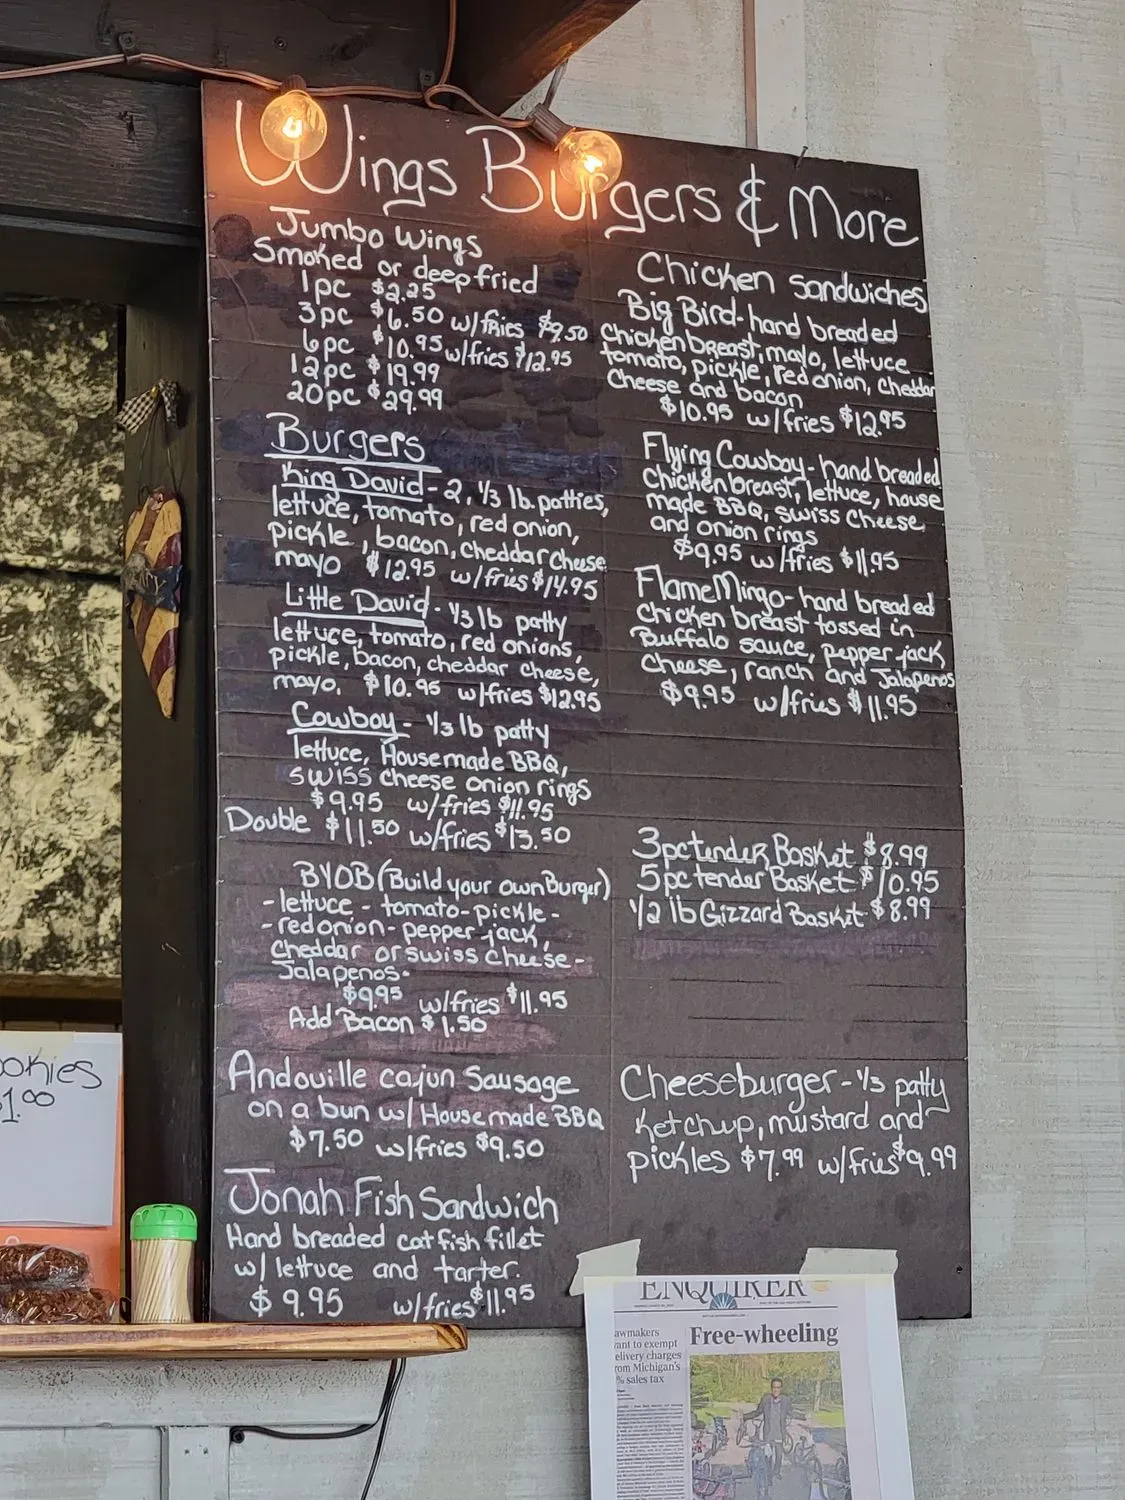 Wings Burgers & More
Jumbo Wings
Smoked or deep fried
1pc $2.25
3pc $6.50 w/fries $9.50
6pc $10.95 w/fries $12.95
12pc $19.99
20pc $29.99
Burgers
King David - 2, 1/3 lb. patties,
lettuce, tomato, red onion,
pickle, bacon, cheddar cheese
mayo $12.95 w/fries $14.95
Little David - 1/3 lb patty
lettuce, tomato, red onions,
pickle, bacon, cheddar cheese,
mayo. $10.95 w/fries $12.95
Cowboy - 1/3 lb patty
lettuce, Housemade BBQ,
swiss cheese onion rings
$9.95 w/fries $11.95
Double $11.50 w/fries $13.50
BYOB (Build your own Burger)
- lettuce - tomato - pickle -
- red onion - pepper jack,
cheddar or swiss cheese -
Jalapenos -
$9.95 w/fries $11.95
Add Bacon $1.50
Andouille cajun Sausage
on a bun w/ House made BBQ
$7.50 w/fries $9.50
Jonah Fish Sandwich
Hand breaded catfish fillet
w/ lettuce and tarter.
$9.95 w/fries $11.95
Chicken Sandwiches
Big Bird - hand breaded
Chicken breast, mayo, lettuce
tomato, pickle, red onion, cheddar
Cheese and bacon
$10.95 w/fries $12.95
Flying Cowboy - hand breaded
Chicken breast, lettuce, house
made BBQ, swiss cheese
and onion rings
$9.95 w/fries $11.95
FlameMingo - hand breaded
Chicken breast tossed in
Buffalo sauce, pepper jack
cheese, ranch and Jalapenos
$9.95 w/fries $11.95
3pc tender Basket $8.99
5pc tender Basket $10.95
1/2 lb Gizzard Basket $8.99
Cheeseburger - 1/3 patty
Ketchup, mustard and
pickles $7.99 w/fries $9.99
ookies
$1.00
ENQUIRER
Free-wheeling
awmakers
ant to exempt
elivery charges
rom Michigan's
% sales tax